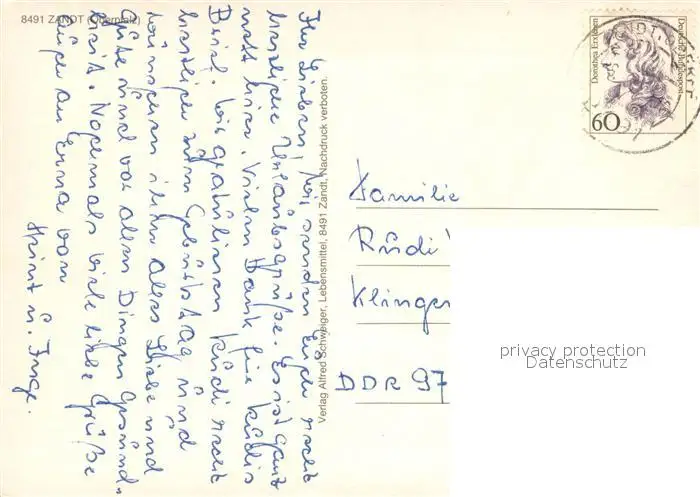 8491 ZANDT (Oberpfalz)
Ihr Lieben, wir senden Euch recht
herzliche Urlaubsgrüße. Es ist ganz
nett hier. Vielen Dank für Rüdis
Brief. Wir gratulieren Rüdi recht
herzlich zum Geburtstag und
wünschen ihm alles Liebe und
Gute und vor allen Dingen Gesund-
heit. Nochmals viele liebe Grüße
auch an Erna von
Heinz u. Inge.
Verlag Alfred Schweiger, Lebensmittel, 8491 Zandt. Nachdruck verboten.
Dorothea Erxleben
Deutsche Bundespost
60
Familie
Rüdi
Klingen
DDR 97
privacy protection
Datenschutz